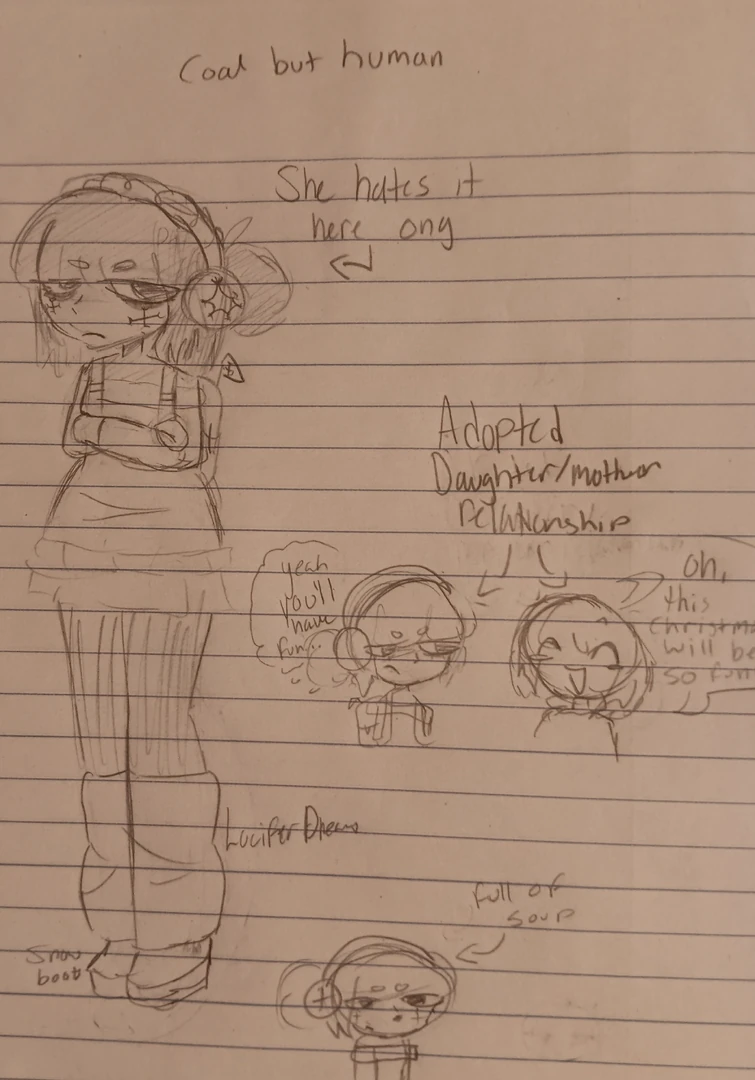 Coal but human
She hates it
here ong
Adopted
Daughter/mother
relationship
yeah
you'll
have
fun...
oh,
this
Christma
will be
so fun
Lucifer
full of
soup
snow
boot